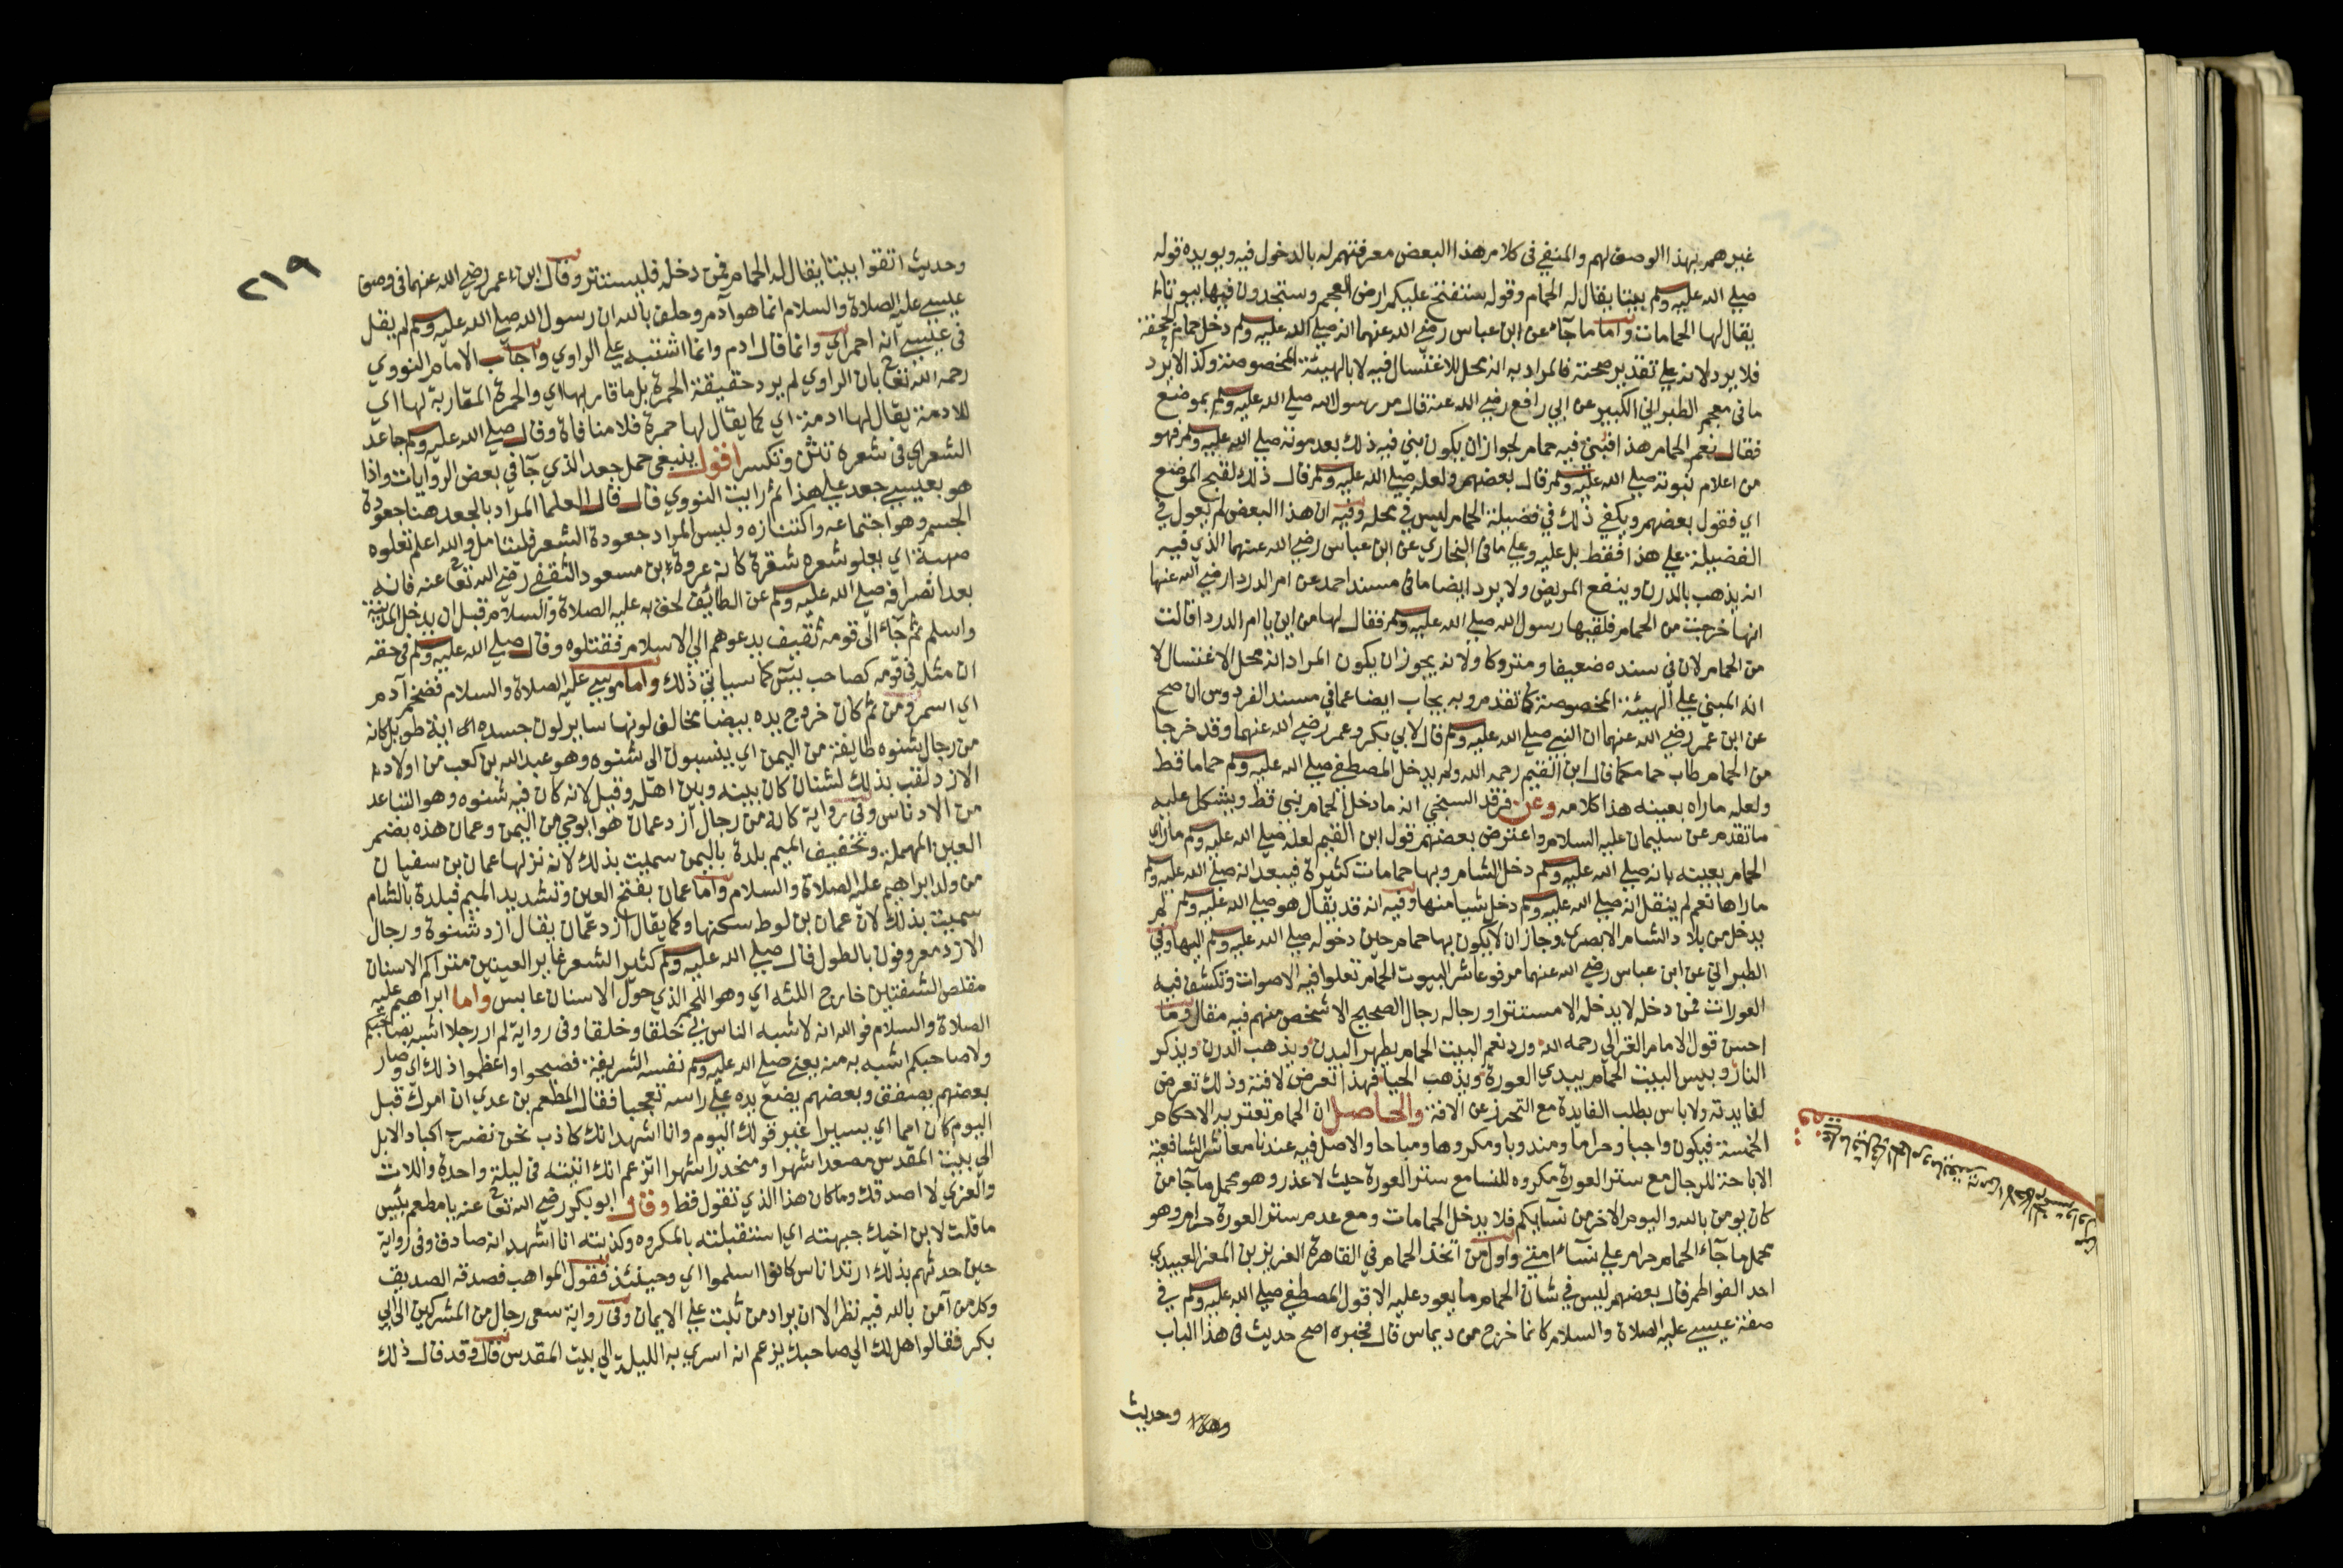 غيرهم بهذا الوصف لهم والمنفي في كلام هذا البعض معرفتهم له بالدخول فيه ويويده قوله
صلي الله عليه وسلم بيتا يقال له الحمام وقوله ستفتح عليكم ارض العجم وستجدون فيها بيوتا
يقال لها الحمامات واما ما جآء عن ابن عباس رضي الله عنهما انه صلي الله عليه وسلم دخل حمام الجحفة
فلا يرد لانه علي تقدير صحته فالمراد به انه محل للاغتسال فيه لا بالهيئة المخصوصة وكذا لا يرد
ما في معجم الطبراني الكبير عن ابي رافع رضي الله عنه قال مر رسول الله صلي الله عليه وسلم بموضع
فقال نعم الحمام هذا فبني فيه حمام لجواز ان يكون بني فيه ذلك بعد موته صلي الله عليه وسلم فهو
من اعلام نبوته صلي الله عليه وسلم قال بعضهم ولعله صلي الله عليه وسلم قال ذلك لقبح الموضع
اي فقول بعضهم ويكفي ذلك في فضيلة الحمام ليس في محله وفيه ان هذا البعض لم يعول في
الفضيلة علي هذا فقط بل عليه وعلي ما في البخاري عن ابن عباس رضي الله عنهما الذي فيه
انه يذهب بالدرن وينفع المريض ولا يرد ايضا ما في مسند احمد عن ام الدردا رضي الله عنها
انها خرجت من الحمام فلقيها رسول الله صلي الله عليه وسلم فقال لها من اين يا ام الدردا قالت
من الحمام لان في سنده ضعيفا ومتروكا ولانه يجوز ان يكون المراد انه محل الاغتسال لا
انه المبني علي الهيئة المخصوصة كما تقدم وبه يجاب ايضا عما في مسند الفردوس ان صح
عن ابن عمر رضي الله عنهما ان النبي صلي الله عليه وسلم قال لابي بكر وعمر رضي الله عنهما وقد خرجا
من الحمام طاب حمامكما قال ابن القيم رحمه الله ولم يدخل المصطفي صلي الله عليه وسلم حماما قط
ولعله ما راه بعينه هذا كلامه وعن فرقد السبخي انه ما دخل الحمام نبي قط ويشكل عليه
ما تقدم عن سليمان عليه السلام واعترض بعضهم قول ابن القيم لعله صلي الله عليه وسلم ما راي
الحمام بعينه بانه صلي الله عليه وسلم دخل الشام وبها حمامات كثيرة فيبعد انه صلي الله عليه وسلم
ما راها نعم لم ينقل انه صلي الله عليه وسلم دخل شيا منها وفيه انه قد يقال هو صلي الله عليه وسلم لم
يدخل من بلاد الشام الا بصري وجاز ان لا يكون بها حمام حين دخوله صلي الله عليه وسلم اليها وفي
الطبراني عن ابن عباس رضي الله عنهما مرفوعا شر البيوت الحمام تعلوا فيه الاصوات وتكشف فيه
العورات فمن دخله لا يدخله الا مستترا ورجاله رجال الصحيح الا شخص منهم فيه مقال وما
احسن قول الامام الغزالي رحمه الله ورد نعم البيت الحمام يطهر البدن ويذهب الدرن ويذكر
النار وبيس البيت الحمام يبدي العورة ويذهب الحيا فهذا تعرض لافته وذلك تعرض
لفايدته ولا باس بطلب الفايدة مع التحرز عن الافة والحاصل ان الحمام تعتريه الاحكام
الخمسة فيكون واجبا وحراما ومندوبا ومكروها ومباحا والاصل فيه عندنا معاشر الشافعية
الاباحة للرجال مع ستر العورة مكروه للنسا مع ستر العورة حيث لا عذر وهو محمل ما جآ من
كان يومن بالله واليوم الاخر من نسايكم فلا يدخل الحمامات ومع عدم ستر العورة حرام وهو
محمل ما جآء الحمام حرام علي نسآء امتي واول من اتخذ الحمام في القاهرة العزيز بن المعز العبيدي
احد الفواطم قال بعضهم ليس في شان الحمام ما يعود عليه الا قول المصطفي صلي الله عليه وسلم في
صفة عيسي عليه الصلاة والسلام كانما خرج من ديماس قال فخبره اصح حديث في هذا الباب
وحديث
٢١٩
وحديث اتقوا بيتا يقال له الحمام فمن دخله فليستتر وقال ابن عمر رضي الله عنهما في وصف
عيسي عليه الصلاة والسلام انما هو آدم وحلف بالله ان رسول الله صلي الله عليه وسلم لم يقل
في عيسي انه احمر اي وانما قال ادم وانما اشتبه علي الراوي واجاب الامام النووي
رحمه الله تعالى بان الراوي لم يرد حقيقة الحمرة بل ما قاربها اي والحمرة المقاربة لها اي
للادمة يقال لها ادمة اي كما يقال لها حمرة فلا منافاة وقال صلي الله عليه وسلم جاعد
الشعر اي في شعره تثن وتكسر اقول ينبغي حمل جعد الذي جآ في بعض الروايات واذا
هو بعيسي جعد علي هذا ثم رايت النووي قال قال العلما المراد بالجعد هنا جعودة
الجسم وهو اجتماعه واكتنازه وليس المراد جعودة الشعر فليتامل والله اعلم تعلوه
صهبة اي يعلو شعره شقرة كانه عروة ابن مسعود الثقفي رضي الله تعالى عنه فانه
بعد انصرافه صلي الله عليه وسلم عن الطائف لحق به عليه الصلاة والسلام قبل ان يدخل المدينة
واسلم ثم جآء الى قومه ثقيف يدعوهم الي الاسلام فقتلوه وقال صلي الله عليه وسلم في حقه
ان مثله في قومه كصاحب يس كما سياتي ذلك واما موسي عليه الصلاة والسلام فضخم آدم
اي اسمر ومن ثم كان خروج يده بيضا مخالف لونها ساير لون جسده اي اية طويل كانه
من رجال شنوه طايفة من اليمن اي ينسبون الى شنوه وهو عبد الله بن كعب من اولاد
الازد لقب بذلك لشنان كان بينه وبين اهله وقيل لانه كان فيه شنوه وهو التباعد
من الادناس وفي رواية كانه من رجال ازد عمان هو ابو حي من اليمن وعمان هذه بضم
العين المهملة وتخفيف الميم بلدة باليمن سميت بذلك لانه نزلها عمان بن سفيان
من ولد ابراهيم عليه الصلاة والسلام واما عمان بفتح العين وتشديد الميم فبلدة بالشام
سميت بذلك لان عمان بن لوط سكنها وكما يقال ازد عمان يقال ازد شنوة ورجال
الازد معروفون بالطول قال صلي الله عليه وسلم كثير الشعر غاير العينين متراكم الاسنان
مقلص الشفتين خارج اللثه اي وهو اللحم الذي حول الاسنان عابس واما ابراهيم عليه
الصلاة والسلام فو الله انه لاشبه الناس بي خلقا وخلقا وفي رواية لم ار رجلا اشبه بصاحبكم
ولا صاحبكم اشبه به منه يعني صلي الله عليه وسلم نفسه الشريفة فضجوا واعظموا ذلك اي وصار
بعضهم يصفق وبعضهم يضع يده علي راسه تعجبا فقال المطعم بن عدي ان امرك قبل
اليوم كان امما اي يسيرا غير قولك اليوم وانا اشهد انك كاذب نحن نضرب اكباد الابل
الي بيت المقدس مصعدا شهرا ومنحدرا شهرا اتزعم انك اتيته في ليلة واحدة واللات
والعزي لا اصدقك وما كان هذا الذي تقول قط وقال ابو بكر رضي الله تعالى عنه يا مطعم بئس
ما قلت لابن اخيك جبهته اي استقبلته بالمكروه وكذبته انا اشهد انه صادق وفي رواية
حين حدثهم بذلك ارتد ناس كانوا اسلموا اي وحينئذ فقول المواهب فصدقه الصديق
وكل من آمن بالله فيه نظر الا ان يراد من ثبت علي الايمان وفي رواية سعي رجال من المشركين الي ابي
بكر فقالوا هل لك الي صاحبك يزعم انه اسري به الليلة الي بيت المقدس قال وقد قال ذلك